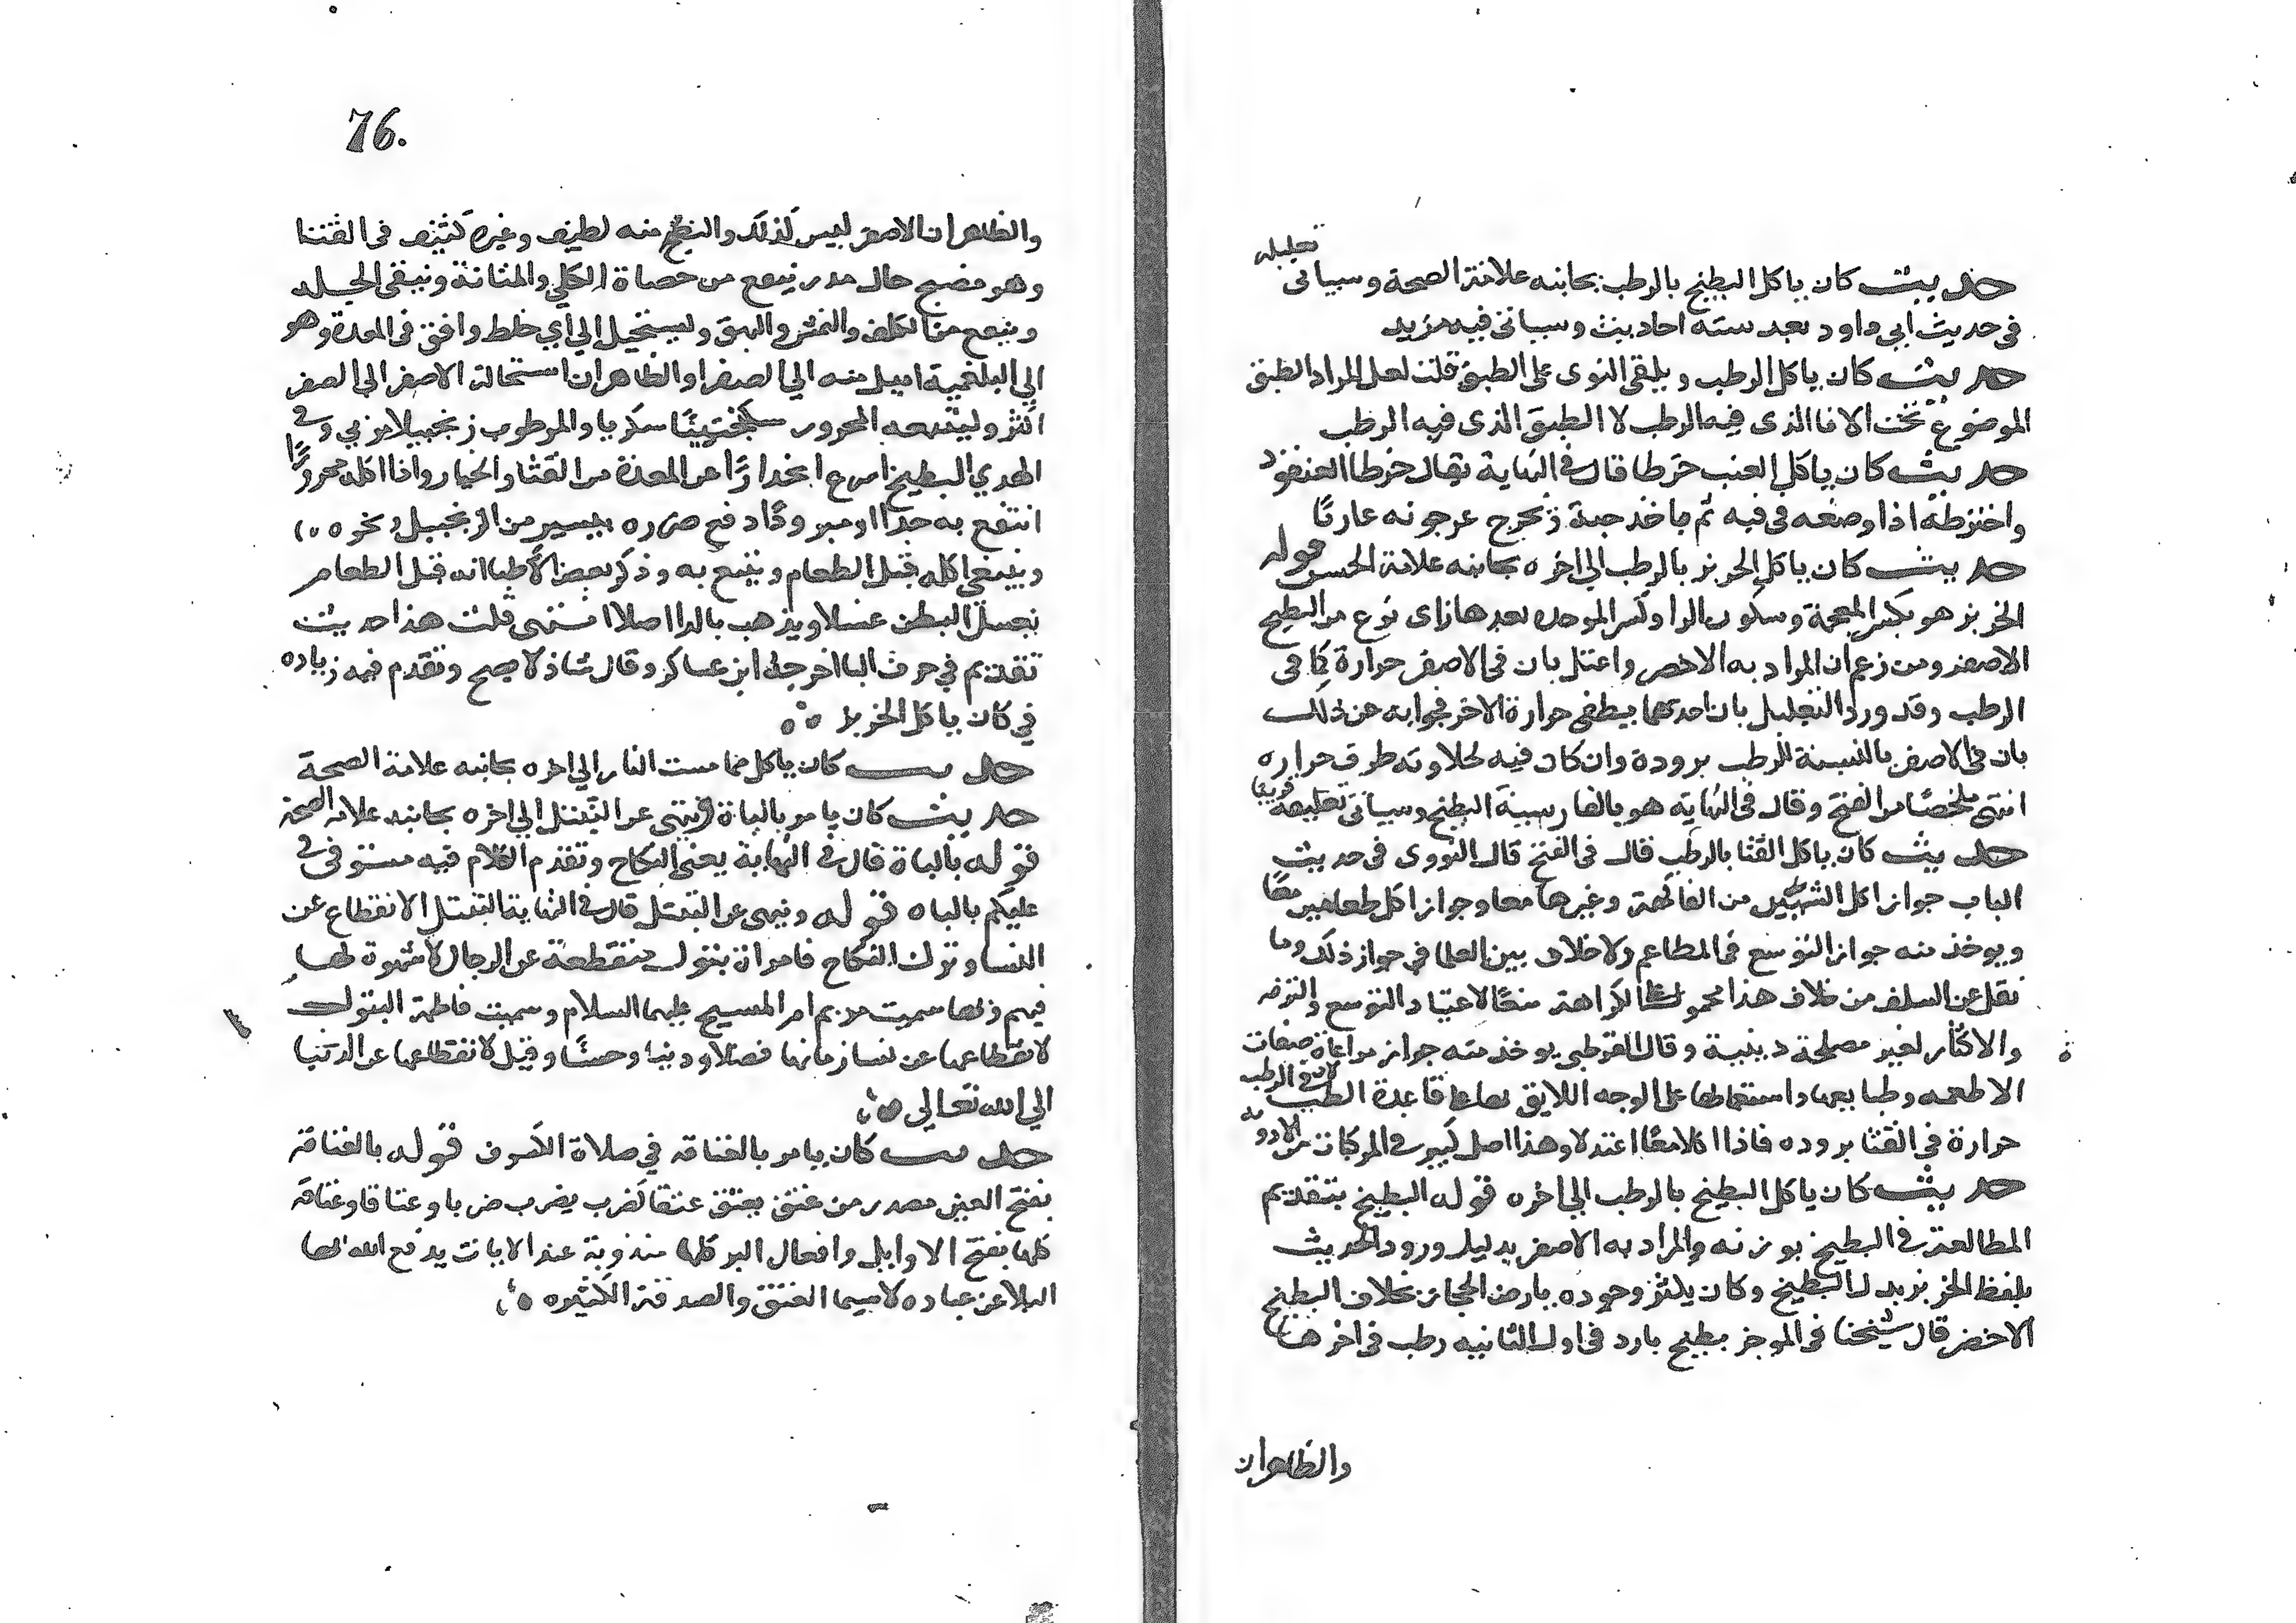 تعليله
حديث كان ياكل البطيخ بالرطب بجانبه علامة الصحة وسياتى
فى حديث ابى داود بعد ستة احاديث وسياتى فيه مزيد
حديث كان ياكل الرطب ويلقى النوى على الطبق قلت لعل المراد الطبق
الموضوع تحت الانا الذى فيه الرطب لا الطبق الذى فيه الرطب
حديث كان ياكل العنب خرطا قال فى النهاية يقال خرط العنقود
واخترطه اذا وضعه فى فيه ثم ياخذ حبه ويخرج عرجونه عاريًا
حديث كان ياكل الخربز بالرطب الي اخره بجانبه علامة الحسن قوله
الخربز هو بكسر المعجمة وسكون الرا وكسر الموحدة بعدها زاى نوع من البطيخ
الاصفر ومن زعم ان المراد به الاخضر واعتل بان فى الاصفر حرارة كما فى
الرطب وقد ورد التعليل بان احدهما يطفى حرارة الاخر فجوابه عن ذلك
بان فى الاصفر بالنسبة للرطب برودة وان كان فيه لحلاوته طرف حراره
انتهى ملخصًا من الفتح وقال فى النهاية هو بالفارسية البطيخ وسياتى تعليقه قريبا
حديث كان ياكل القثا بالرطب قال فى الفتح قال النووى فى حديث
الباب جواز اكل الشيئين من الفاكهة وغيرها معا وجواز اكل طعامين معًا
ويوخذ منه جواز التوسع فى المطاعم ولا خلاف بين العلما في جواز ذلك وما
نقل عن السلف من خلاف هذا محمول على الكراهة منعًا لاعتياد التوسع والترفه
والاكثار لغير مصلحة دينية وقال القرطبي يوخذ منه جواز مراعاة صفات
الاطعمه وطبايعها واستعمالها على الوجه اللايق بها على قاعدة الطب لان فى الرطب
حرارة فى القثا بروده فاذا اكلا معًا اعتدلا وهذا اصل كبير فى المركبات من الادويه
حديث كان ياكل البطيخ بالرطب الي اخره قوله البطيخ بتقديم
الطا لغة فى البطيخ بوزنه والمراد به الاصفر بدليل ورود الحديث
بلفظ الخربز بدل البطيخ وكان يكثر وجوده بارض الحجاز بخلاف البطيخ
الاخضر قال شيخنا فى الموجز بطيخ بارد فى اول الثانيه رطب فى اخرها
والظاهر ان
76.
والظاهر ان الاصفر ليس كذلك والنضيج منه لطيف وغيره كثيف فى القثا
وهو منضج جال مدر ينفع من حصاة الكلي والمثانة وينقى الجلد
وينفع من الكلف والنمش والبهق ويستحيل الي اي خلط وافق فى المعدة وهو
الي البلغمية اميل منه الي الصفرا والظاهر ان استحالة الاصفر الي الصفر
اكثر وليتبعه المحرور سكنجبينًا سكريا والمرطوب زنجبيلا مربي وفى
الهدي البطيخ اسرع انحدارًا عن المعدة من القثا والخيار واذا اكله محرورًا
انتفع به جدا او مبرودًا دفع ضرره بيسير من الزنجبيل ونحوه
وينبغي اكله قبل الطعام ويتبع به وذكر بعض الاطبا انه قبل الطعام
يغسل البطن غسلا ويذهب بالدا اصلا انتهى قلت هذا حديث
تقديم في حرف البا اخرجه ابن عساكر وقال شاذ لا يصح وتقدم فيه زياده
في كان ياكل الخربز
حديث كان ياكل مما مست النار الي اخره بجانبه علامة الصحة
حديث كان يامر بالباة وينهى عن التبتل الي اخره بجانبه علامة الصحة
قوله بالباة قال فى النهاية يعنى النكاح وتقدم الكلام فيه مستوفى فى
عليكم بالباه قوله وينهى عن التبتل قال فى النهاية التبتل الانقطاع عن
النسا وترك النكاح فامراة بتول منقطعة عن الرجال لا شهوة لها
فيهم وبها سميت مريم ام المسيح عليهما السلام وسميت فاطمة البتول
لانقطاعها عن نسا زمانها فضلا ودينا وحسبًا وقيل لانقطاعها عن الدنيا
الي الله تعالي
حديث كان يامر بالعتاقه في صلاة الكسوف قوله بالعتاقه
بفتح العين مصدر من عتق يعتق عتقا كضرب يضرب ضربا وعتاقا وعتاقه
كلها بفتح الاوايل وافعال البر كلها مندوبة عند الايات يدفع الله بها
البلا عن عباده لا سيما العتق والصدقة الكثيره